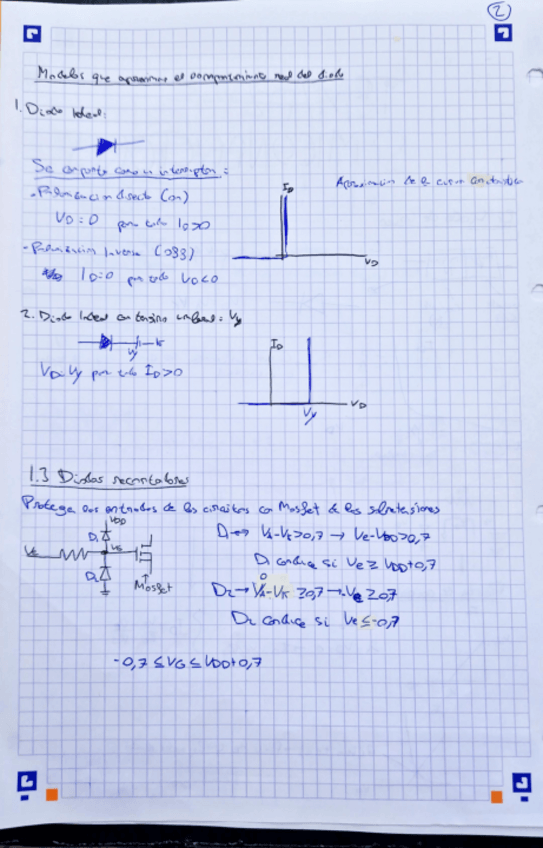 2
Modelos que aproximan el comportamiento real del diodo
1. Diodo Ideal:
Se comporta como un interruptor:
- Polarización directa (on)
VD=0 para todo ID>0
- Polarización Inversa (off)
ID=0 para todo VD<0
Aproximación de la curva característica
ID
VD
2. Diodo Ideal con tensión umbral: Vγ
Vγ
VD=Vγ para todo ID>0
ID
Vγ
VD
1.3 Diodos recortadores
Protege las entradas de los circuitos con Mosfet de las sobretensiones
VDD
D1
Ve
VG
D2
Mosfet
D1 → VA-VK>0,7 → Ve-VDD>0,7
D1 conduce si Ve ≥ VDD+0,7
0
D2 → VA-VK ≥0,7 → -Ve ≥0,7
D2 conduce si Ve ≤ -0,7
-0,7 ≤ VG ≤ VDD+0,7